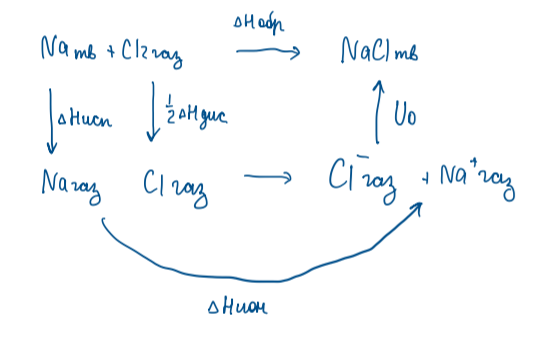 ΔHобр
Naтв + Cl2газ → NaClтв
ΔHисп ½ΔHдис U0
Naгаз Clгаз → Cl⁻газ + Na⁺газ
ΔHион